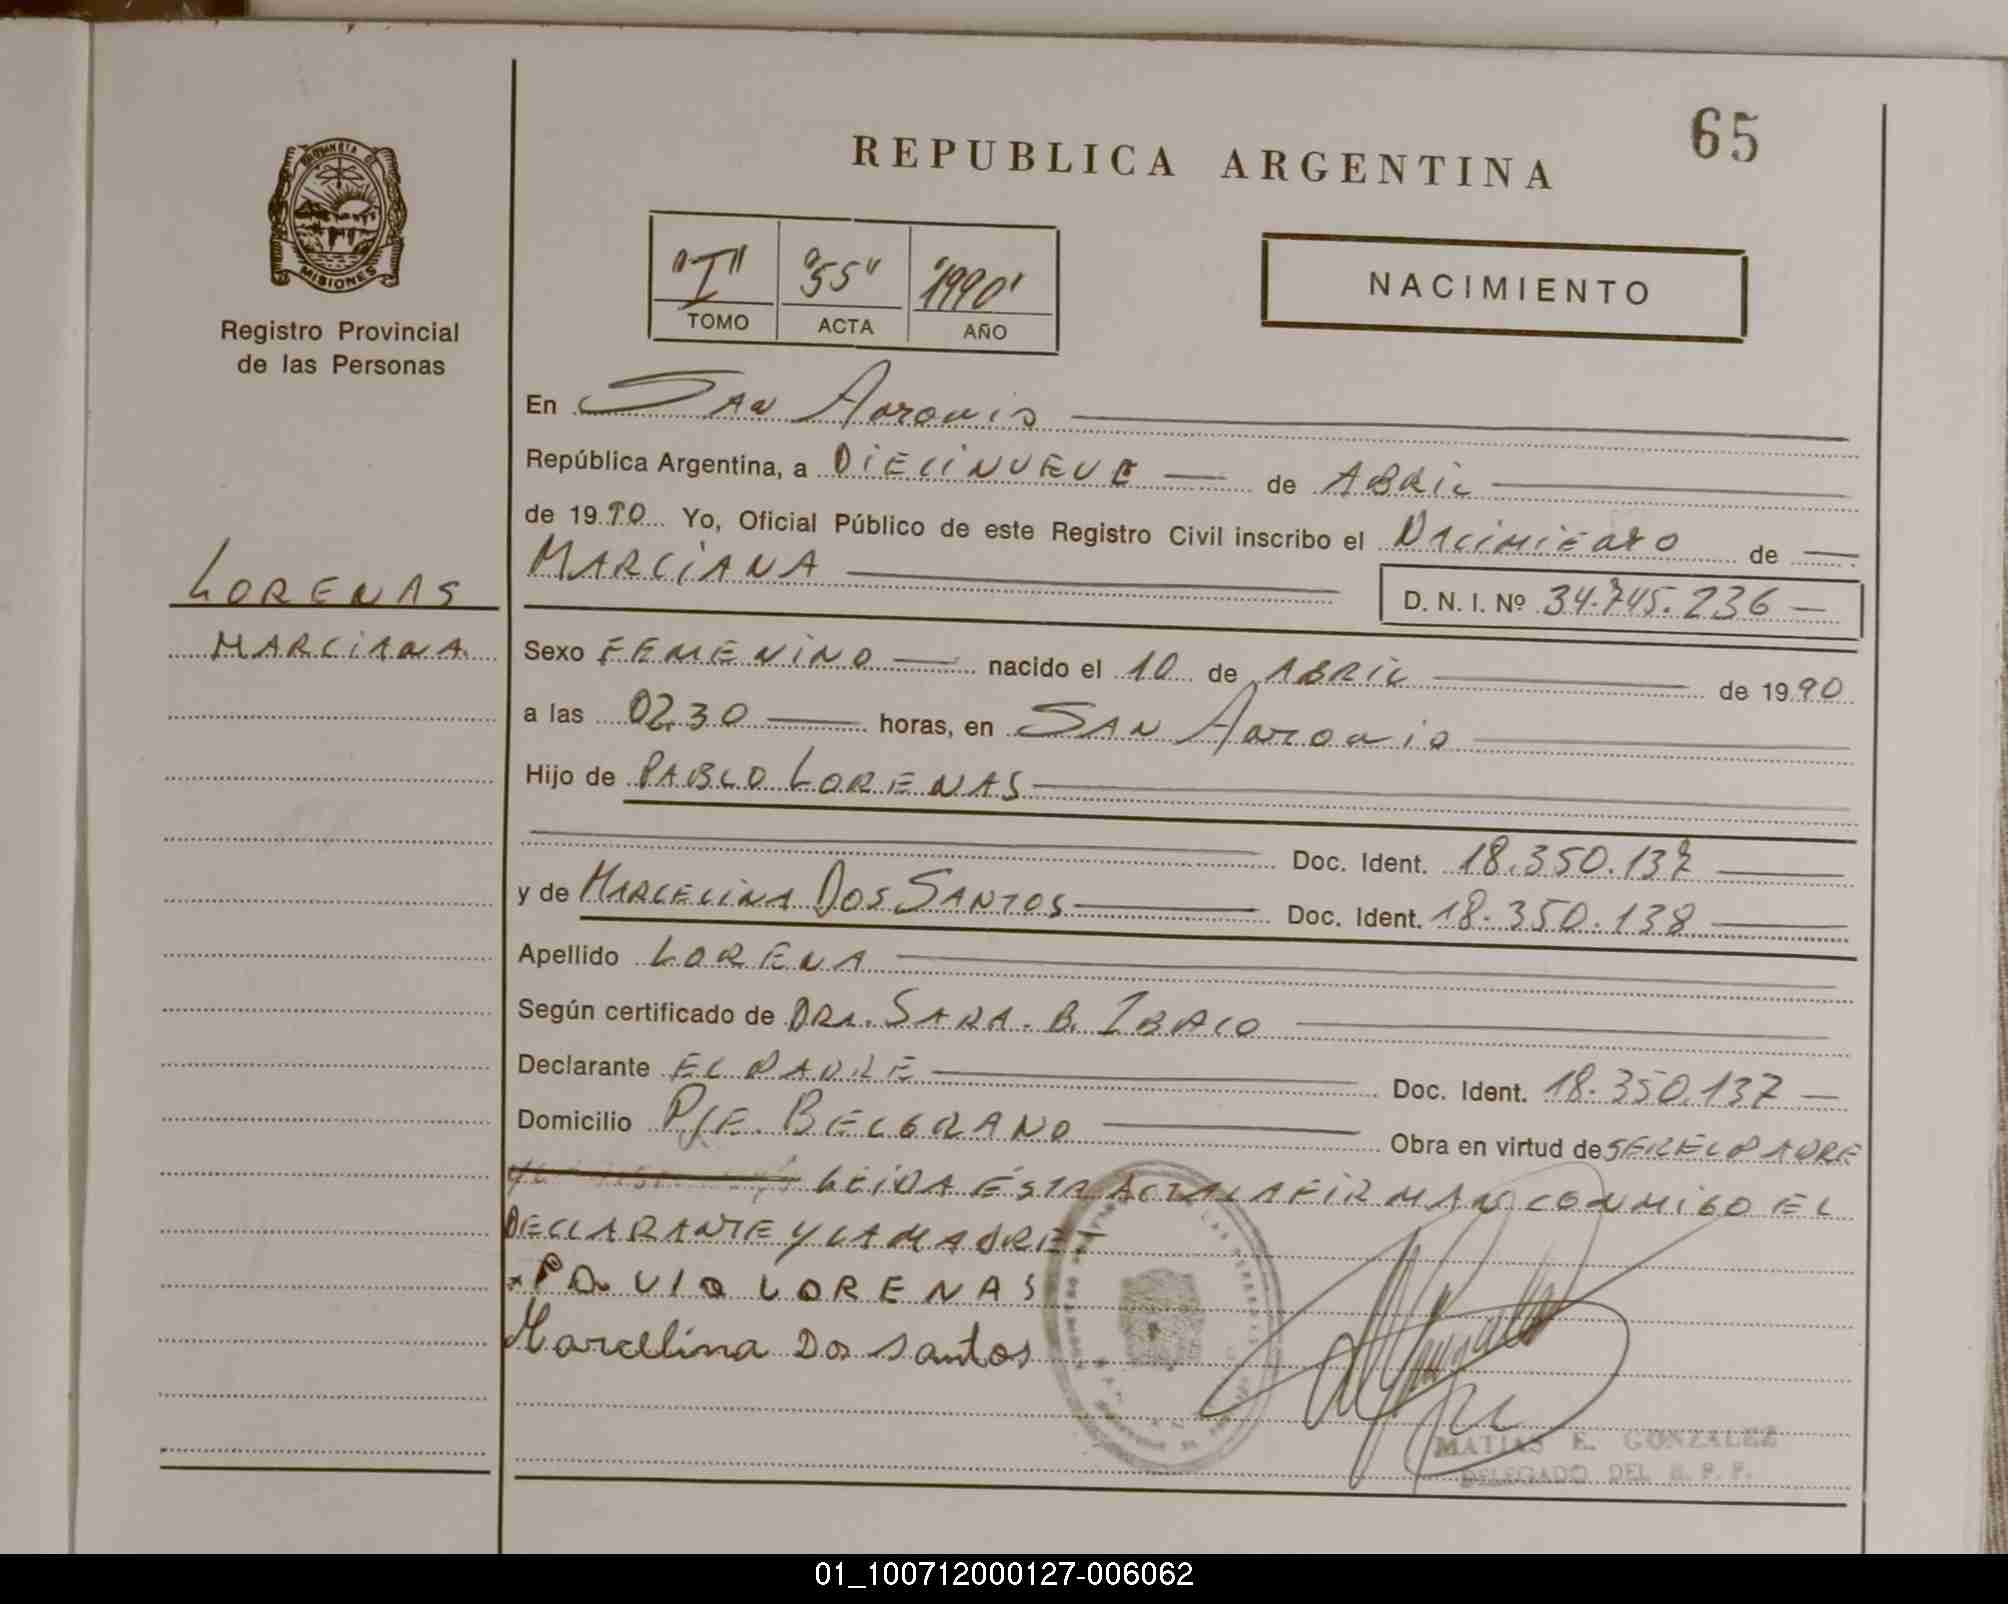 65
REPUBLICA ARGENTINA
PROVINCIA DE MISIONES
Registro Provincial
de las Personas
"I" "55" "1990"
TOMO ACTA AÑO
NACIMIENTO
En San Antonio
República Argentina, a DIECINUEVE de ABRIL
de 1990 Yo, Oficial Público de este Registro Civil inscribo el NACIMIENTO de
MARCIANA
D. N. I. Nº 34.745.236
LORENAS
MARCIANA
Sexo FEMENINO nacido el 10 de ABRIL de 1990
a las 02.30 horas, en SAN Antonio
Hijo de PABLO LORENAS
Doc. Ident. 18.350.137
y de MARCELINA DOS SANTOS Doc. Ident. 18.350.138
Apellido LORENA
Según certificado de DRA. SARA. B. IBACO
Declarante EL PADRE Doc. Ident. 18.350.137
Domicilio PJE. BELGRANO Obra en virtud de SER EL PADRE
LEIDA ÉSTA ACTA LA FIRMAN CONMIGO EL
DECLARANTE Y LA MADRE.-
LORENAS
Marcelina Dos santos
MATIAS E. GONZALEZ
DELEGADO DEL R. P. P.
01_100712000127-006062